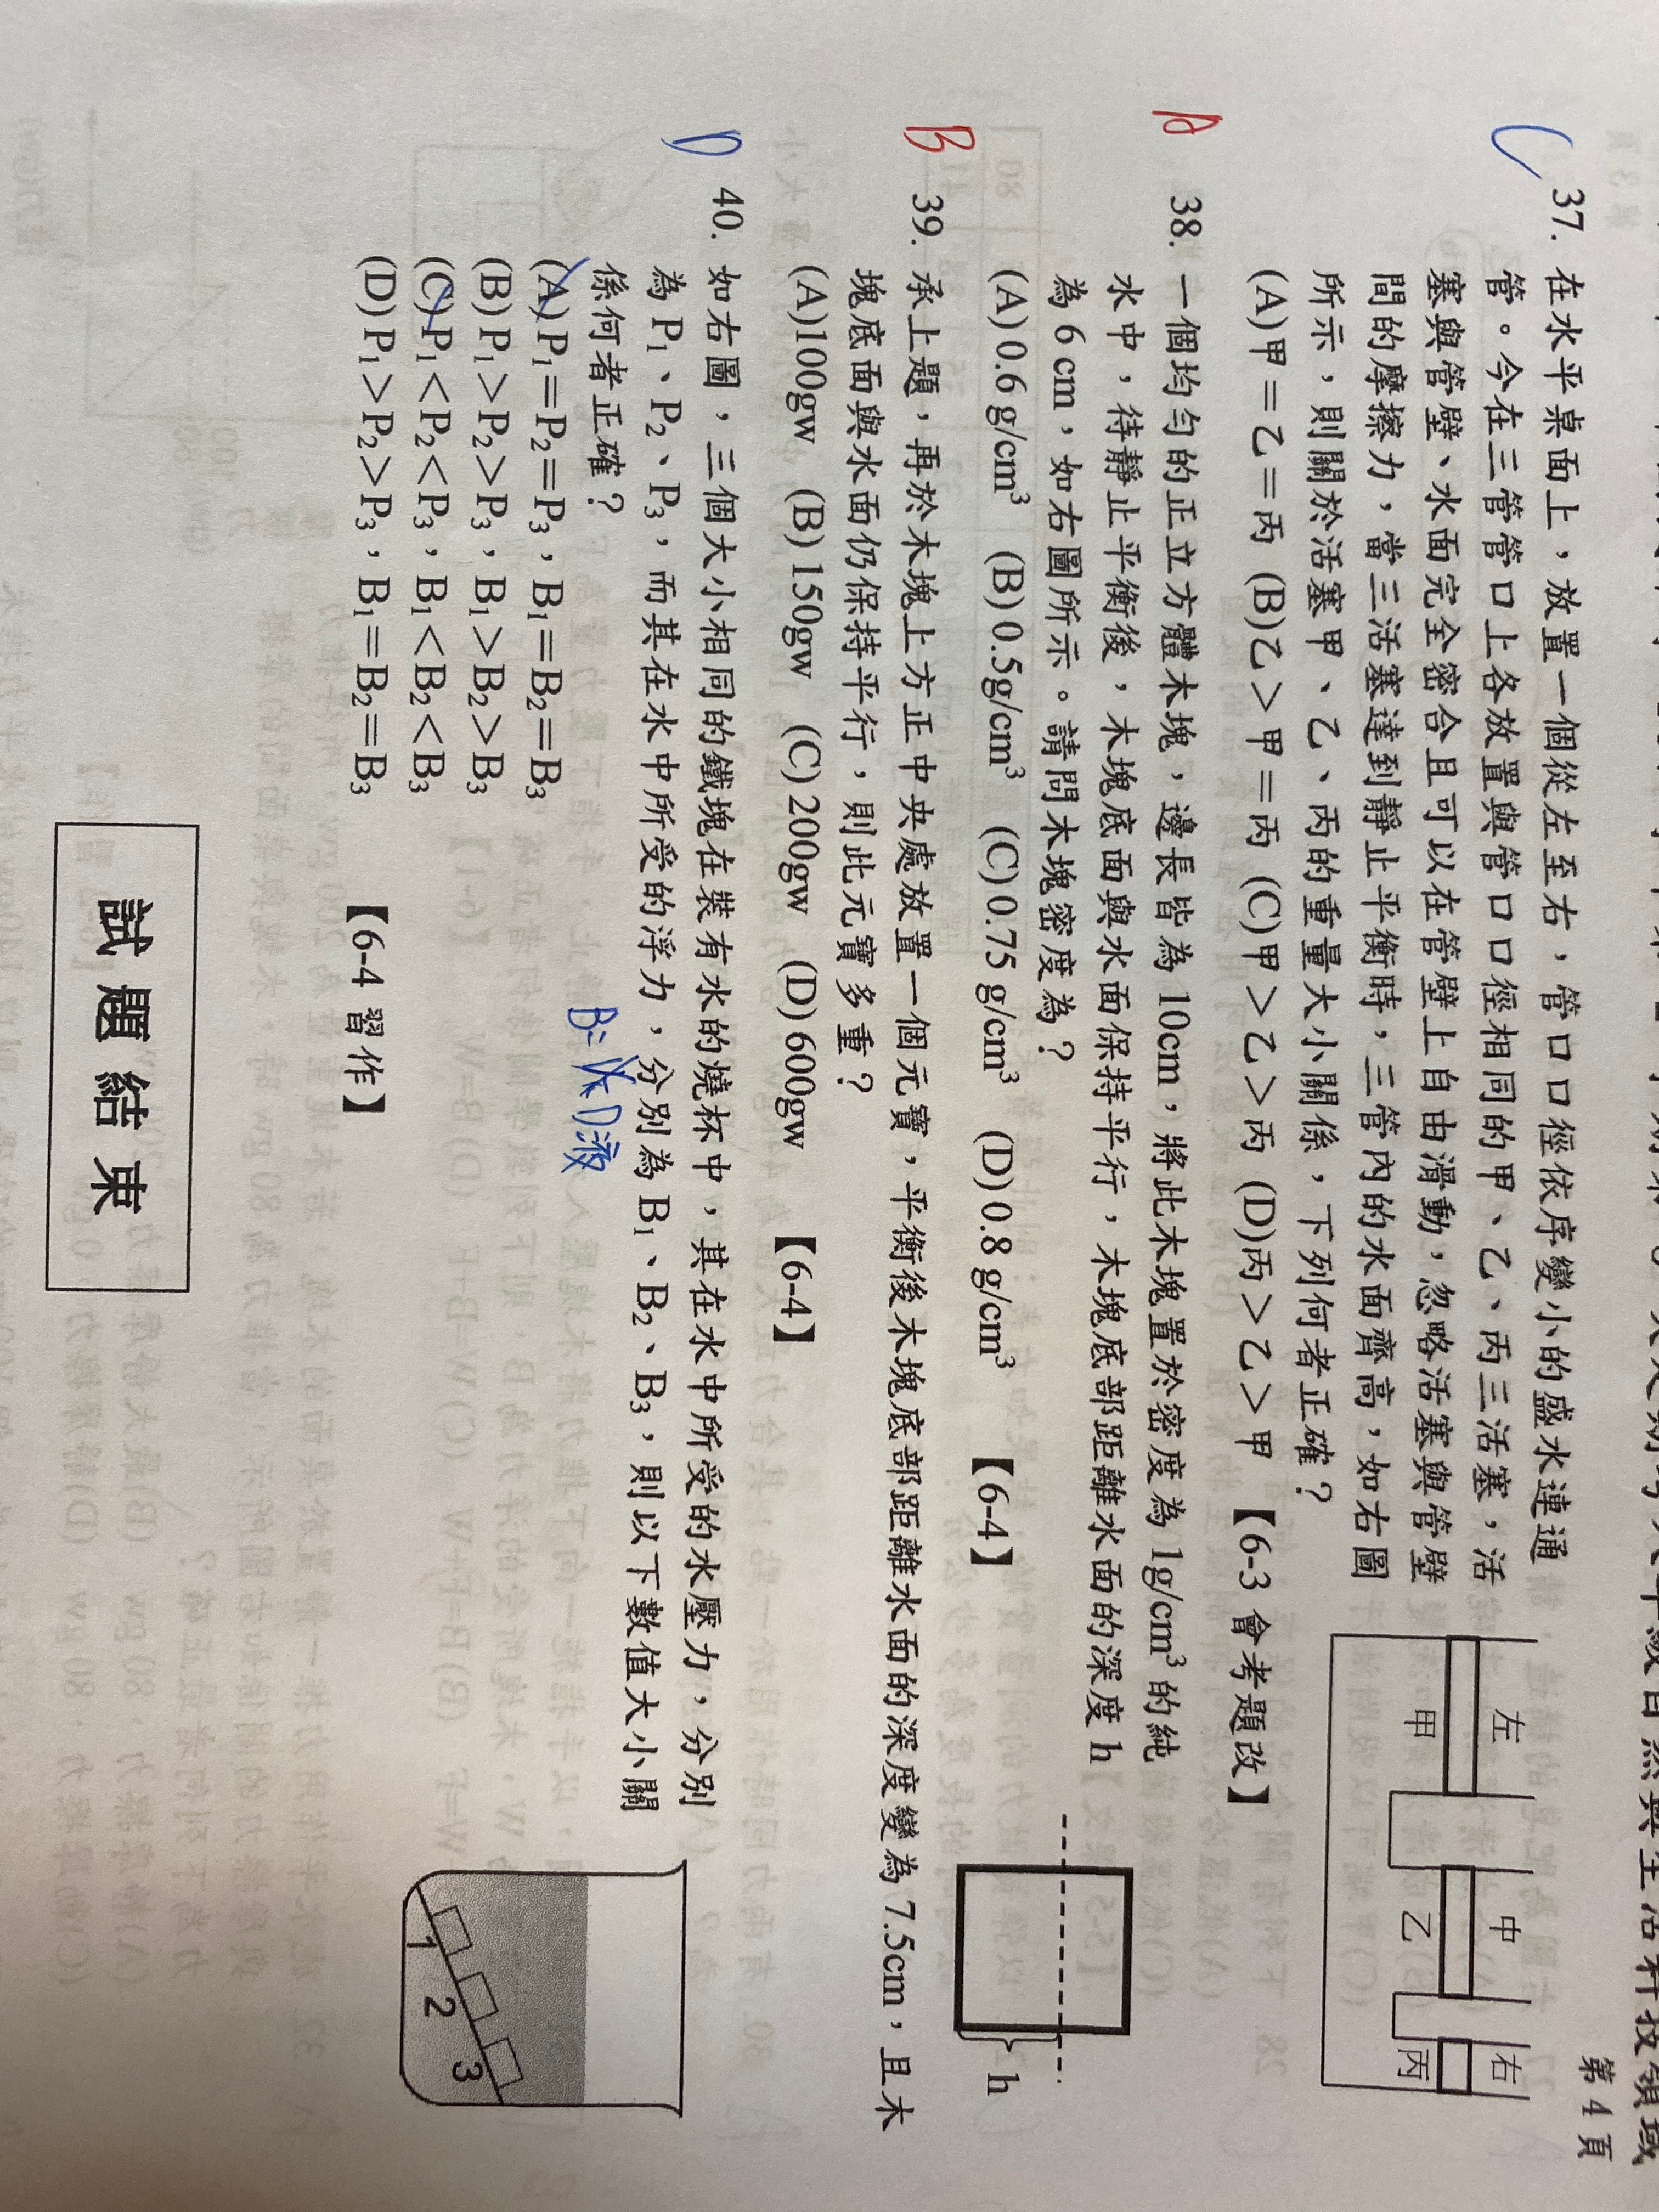 第 4 頁
C 37. 在水平桌面上，放置一個從左至右，管口口徑依序變小的盛水連通
管。今在三管管口上各放置與管口口徑相同的甲、乙、丙三活塞，活
塞與管壁、水面完全密合且可以在管壁上自由滑動，忽略活塞與管壁
間的摩擦力，當三活塞達到靜止平衡時，三管內的水面齊高，如右圖
所示，則關於活塞甲、乙、丙的重量大小關係，下列何者正確？
(A)甲＝乙＝丙 (B)乙＞甲＝丙 (C)甲＞乙＞丙 (D)丙＞乙＞甲 【6-3 會考題改】
左 中 右
甲 乙 丙
A 38. 一個均勻的正立方體木塊，邊長皆為 10cm，將此木塊置於密度為 1g/cm³ 的純
水中，待靜止平衡後，木塊底面與水面保持平行，木塊底部距離水面的深度 h
為 6 cm，如右圖所示。請問木塊密度為？
(A) 0.6 g/cm³ (B) 0.5g/cm³ (C) 0.75 g/cm³ (D) 0.8 g/cm³ 【6-4】
h
B 39. 承上題，再於木塊上方正中央處放置一個元寶，平衡後木塊底部距離水面的深度變為 7.5cm，且木
塊底面與水面仍保持平行，則此元寶多重？
(A)100gw (B) 150gw (C) 200gw (D) 600gw 【6-4】
D 40. 如右圖，三個大小相同的鐵塊在裝有水的燒杯中，其在水中所受的水壓力，分別
為 P₁、P₂、P₃，而其在水中所受的浮力，分別為 B₁、B₂、B₃，則以下數值大小關
係何者正確？
(A) P₁＝P₂＝P₃，B₁＝B₂＝B₃
(B) P₁＞P₂＞P₃，B₁＞B₂＞B₃
(C) P₁＜P₂＜P₃，B₁＜B₂＜B₃
(D) P₁＞P₂＞P₃，B₁＝B₂＝B₃ 【6-4 習作】
1 2 3
試題結束